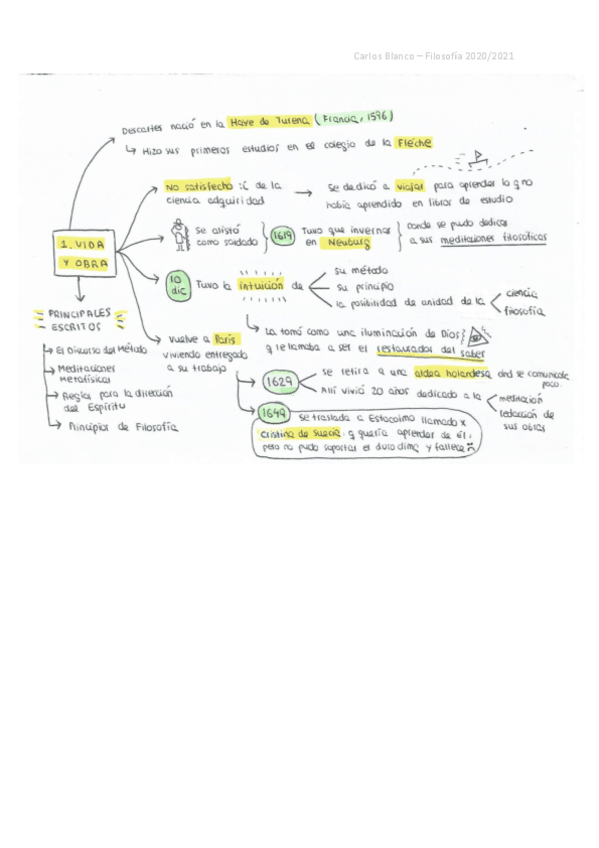 Carlos Blanco – Filosofía 2020/2021
Descartes nació en la Haye de Turena (Francia, 1596)
↳ Hizo sus primeros estudios en el colegio de la Flèche
No satisfecho :( de la
ciencia adquirida
→ Se dedicó a viajar para aprender lo q no
había aprendido en libros de estudio
1. VIDA
Y OBRA
Se alistó
como soldado
1619
Tuvo que invernar
en Neuburg
donde se pudo dedicar
a sus meditaciones filosóficas
10
dic
Tuvo la intuición de
su método
su principio
la posibilidad de unidad de la
ciencia
filosofía
↳ La tomó como una iluminación de Dios
q le llamaba a ser el restaurador del saber
PRINCIPALES
ESCRITOS
↳ El Discurso del Método
↳ Meditaciones
Metafísicas
↳ Reglas para la dirección
del Espíritu
↳ Principios de Filosofía
Vuelve a París
viviendo entregado
a su trabajo
1629
se retira a una aldea holandesa dnd se comunicaba
poco.
Allí vivió 20 años dedicado a la
meditación
redacción de
sus obras
1649
se traslada a Estocolmo llamado x
Cristina de Suecia, q quería aprender de él,
pero no pudo soportar el duro clima y fallece